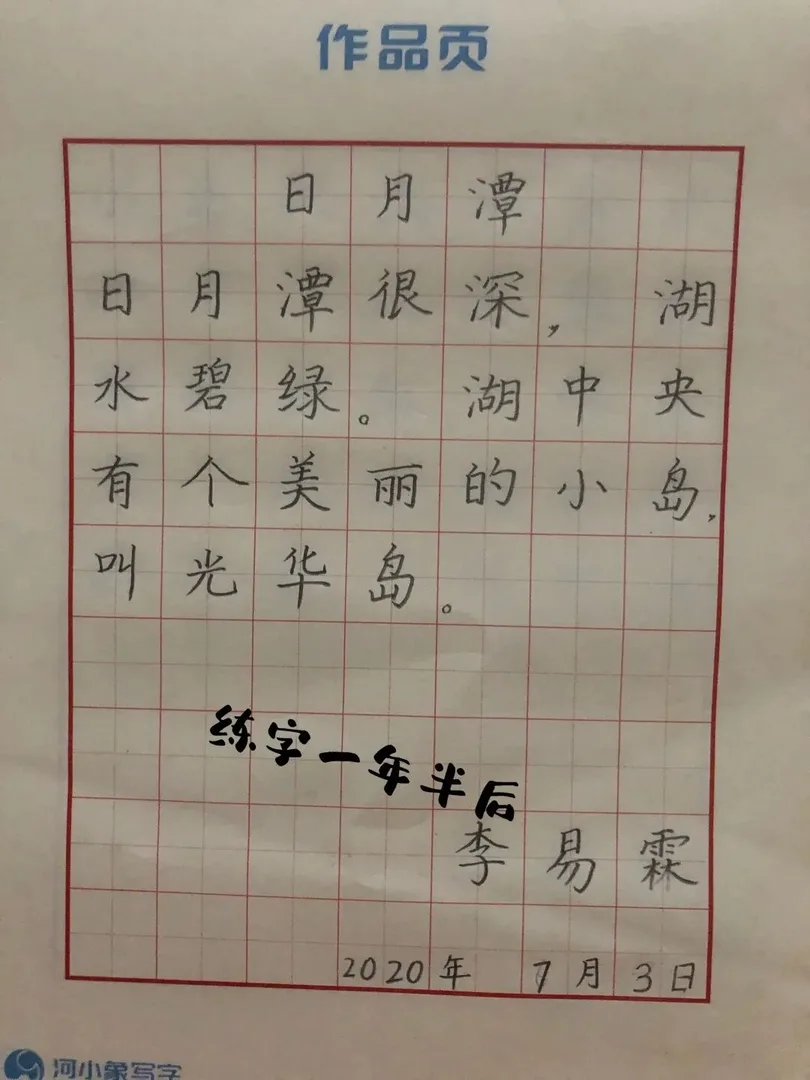 作品页
日月潭
日月潭很深，湖
水碧绿。湖中央
有个美丽的小岛，
叫光华岛。
练字一年半后
李易霖
2020年 7月3日
河小象写字